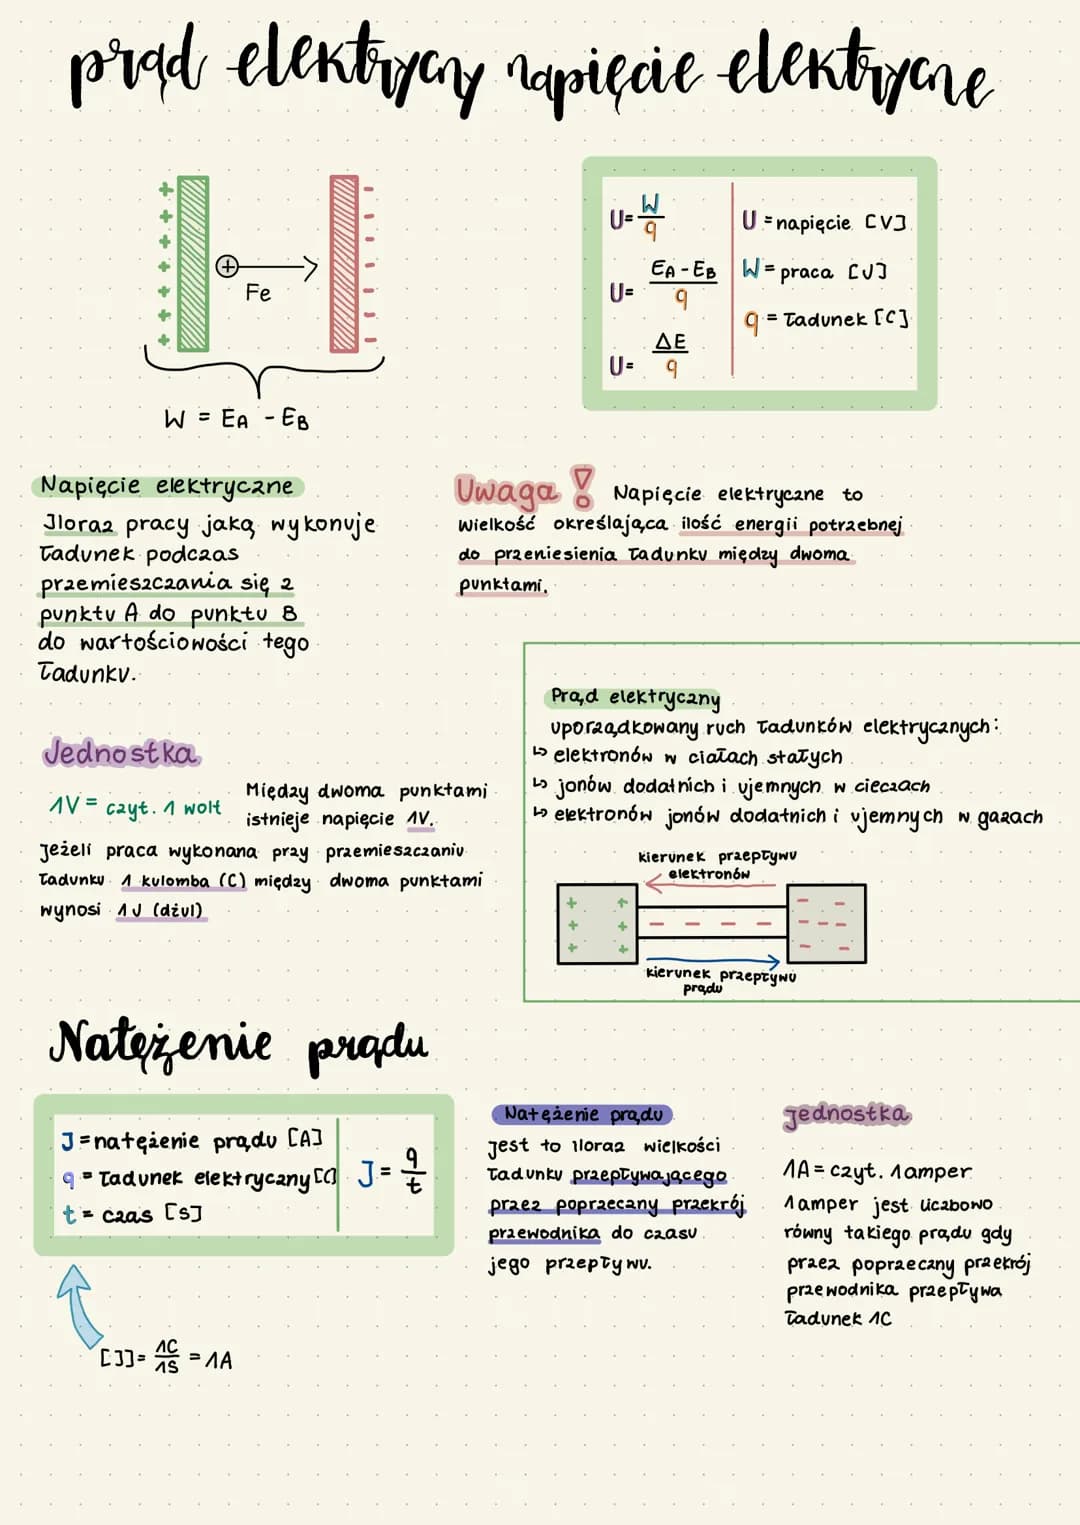 prąd elektryczny napięcie elektryczne
+ + + + + + +
- - - - - - -
+
Fe
W = EA - EB
U = W/q
U = EA - EB/q
U = ΔE/q
U = napięcie [V]
W = praca [J]
q = ładunek [C]
Napięcie elektryczne
Iloraz pracy jaką wykonuje
ładunek podczas
przemieszczania się z
punktu A do punktu B
do wartościowości tego
ładunku.
Uwaga! Napięcie elektryczne to
wielkość określająca ilość energii potrzebnej
do przeniesienia ładunku między dwoma
punktami.
Jednostka
1V = czyt. 1 wolt
Między dwoma punktami
istnieje napięcie 1V.
Jeżeli praca wykonana przy przemieszczaniu
ładunku 1 kulomba (C) między dwoma punktami
wynosi 1J (dżul)
Prąd elektryczny
uporządkowany ruch ładunków elektrycznych:
↳ elektronów w ciałach stałych
↳ jonów dodatnich i ujemnych w cieczach
↳ elektronów jonów dodatnich i ujemnych w gazach
kierunek przepływu
elektronów
+ +
+ +
+ +
- - - -
- -
- - -
- -
kierunek przepływu
prądu
Natężenie prądu
J = natężenie prądu [A]
q = ładunek elektryczny [C]
t = czas [s]
J = q/t
[J] = 1C/1S = 1A
Natężenie prądu
jest to iloraz wielkości
ładunku przepływającego
przez poprzeczny przekrój
przewodnika do czasu
jego przepływu.
jednostka
1A = czyt. 1 amper
1 amper jest liczbowo
równy takiego prądu gdy
przez poprzeczny przekrój
przewodnika przepływa
ładunek 1C